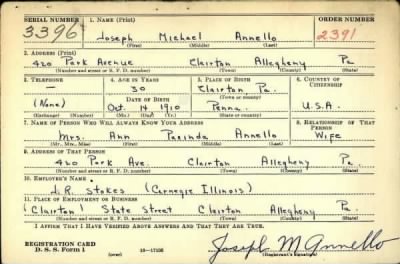 SERIAL NUMBER 1. NAME (Print) ORDER NUMBER
3396 Joseph Michael Annello 2391
(First) (Middle) (Last)
2. ADDRESS (Print)
420 Park Avenue Clairton Allegheny Pa
(Number and street or R. F. D. number) (Town) (County) (State)
3. TELEPHONE 4. AGE IN YEARS 5. PLACE OF BIRTH 6. COUNTRY OF CITIZENSHIP
— 30 Clairton Pa.
DATE OF BIRTH (Town or county)
(None) Oct. 14 1910 Penna. U.S.A.
(Exchange) (Number) (Mo.) (Day) (Yr.) (State or country)
7. NAME OF PERSON WHO WILL ALWAYS KNOW YOUR ADDRESS 8. RELATIONSHIP OF THAT PERSON
Mrs. Ann Annello Wife
(Mr., Mrs., Miss) (First) (Middle) (Last)
9. ADDRESS OF THAT PERSON
420 Park Ave. Clairton Allegheny Pa.
(Number and street or R. F. D. number) (Town) (County) (State)
10. EMPLOYER'S NAME
J.R. Stokes (Carnegie Illinois)
11. PLACE OF EMPLOYMENT OR BUSINESS
(Clairton) State Street Clairton Allegheny Pa
(Number and street or R. F. D. number) (Town) (County) (State)
I AFFIRM THAT I HAVE VERIFIED ABOVE ANSWERS AND THAT THEY ARE TRUE.
REGISTRATION CARD
D. S. S. Form 1 (over) 16—17105 Joseph M Annello
(Registrant's signature)